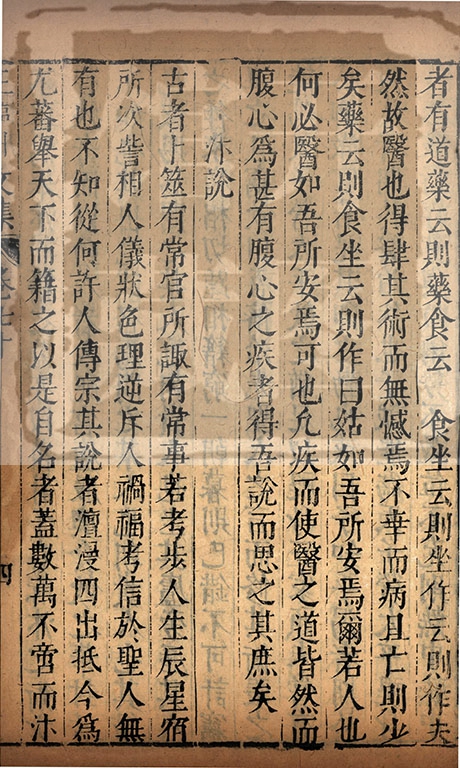 者有道藥云則藥食云 食坐云則坐作云則作夫
然故醫也得肆其術而無憾焉不幸而病且亡則少
矣藥云則食坐云則作曰姑如吾所安焉爾若人也
何必醫如吾所安焉可也凡疾而使醫之道皆然而
腹心為甚有腹心之疾者得吾說而思之其庶矣
汴說
古者卜筮有常官所諏有常事若考步人生辰星宿
所次訾相人儀狀色理逆斥人禍福考信於聖人無
有也不知從何許人傳宗其說者澶漫四出抵今為
尤蕃舉天下而籍之以是自名者蓋數萬不啻而汴
四